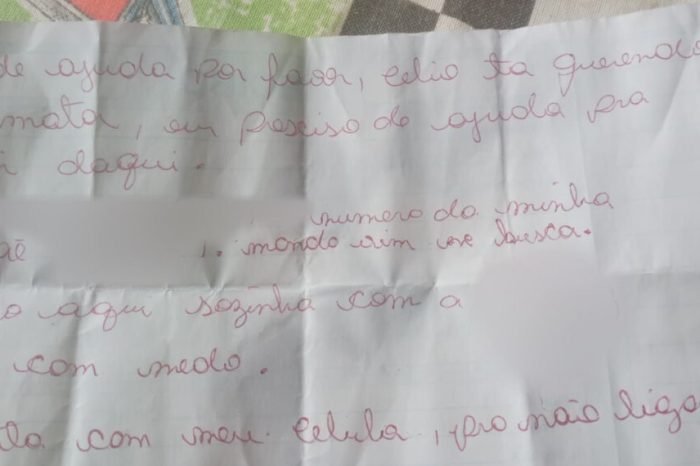 de ajuda por favor, celio ta querendo
mata, eu presciso de ajuda pra
daqui.
numero da minha
mãe
mando vim me busca.
o aqui sozinha com a
com medo.
com meu celula, pro não liga